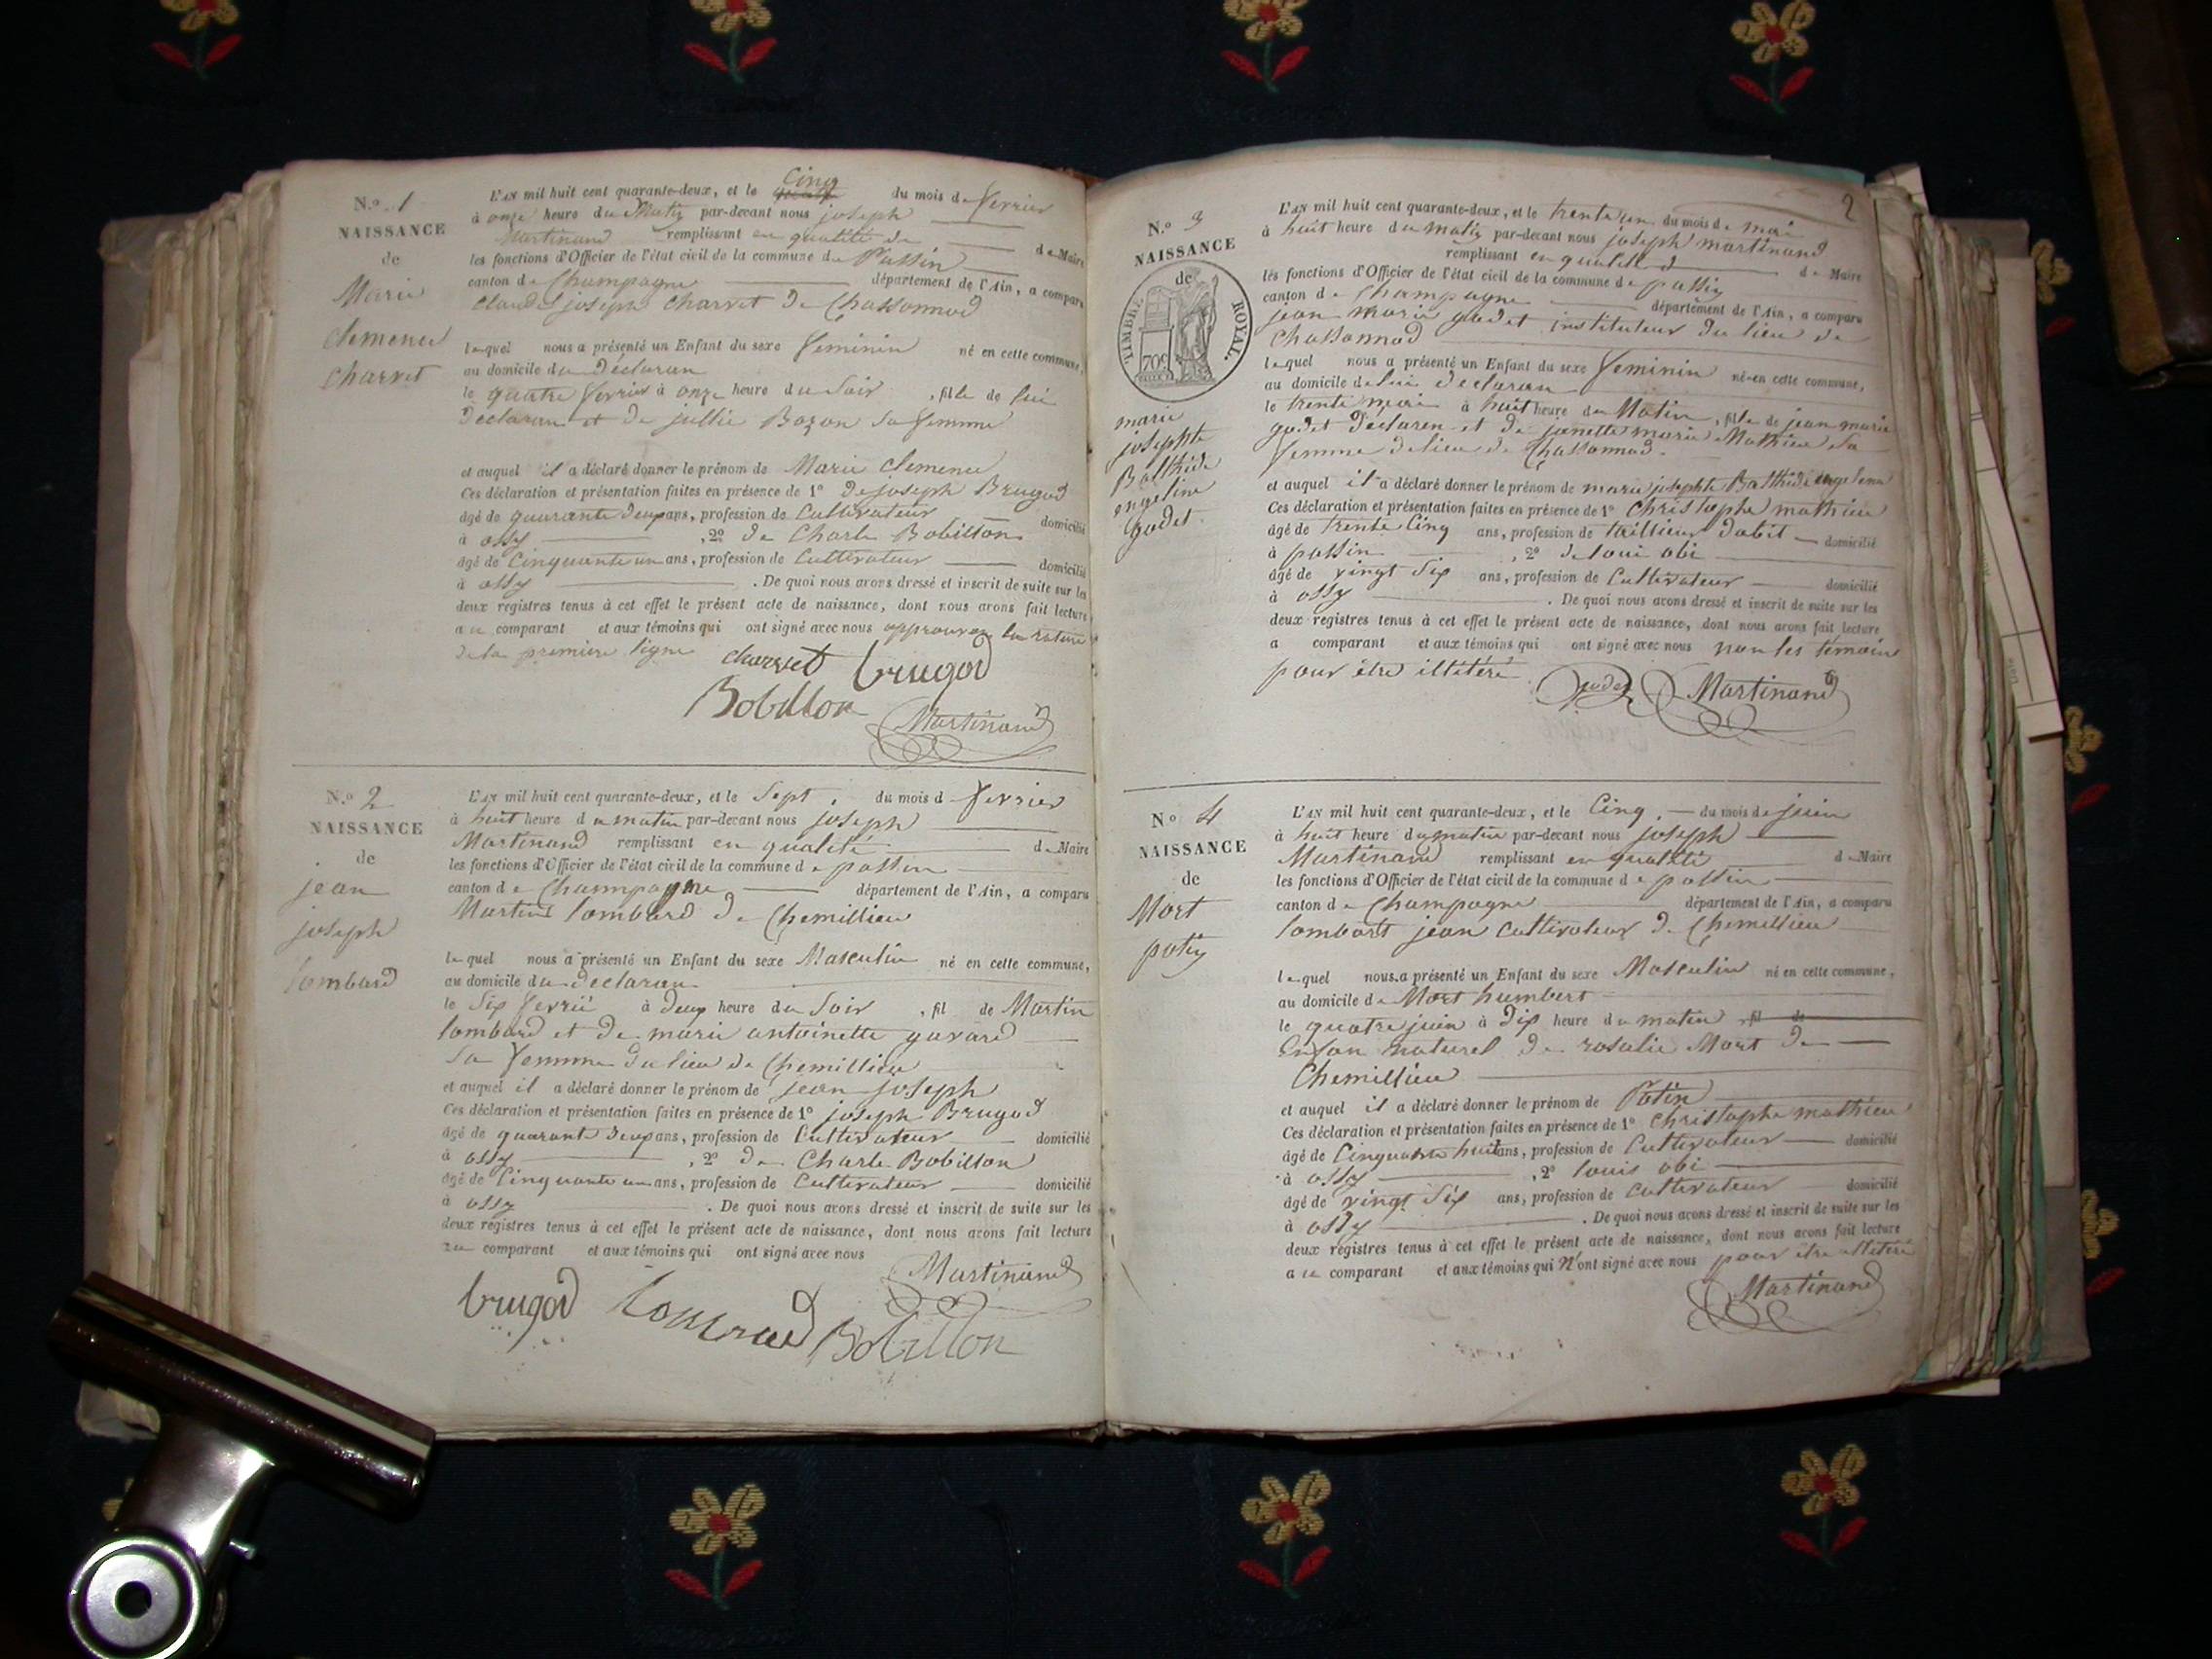 N.º 1
NAISSANCE
de
Marie
clemence
charvet
L'AN mil huit cent quarante-deux, et le Cinq du mois de fevrier
à onze heure du Matin par-devant nous joseph
Martinand remplissant en qualité de d Maire
les fonctions d'Officier de l'état civil de la commune de Passin
canton de Champagne département de l'Ain, a comparu
Claude joseph Charvet de Chassonnod
lequel nous a présenté un Enfant du sexe feminin né en cette commune,
au domicile du declaran
le quatre fevrier à onze heure du Soir , fille de lui
declaran et de jullie Bozon sa femme
et auquel il a déclaré donner le prénom de Marie clemence
Ces déclaration et présentation faites en présence de 1º De joseph Brugod
âgé de quarante deux ans, profession de Cultivateur domicilié
à ossy , 2º de Charle Bobillon
âgé de Cinquante un ans, profession de Cultivateur domicilié
à ossy . De quoi nous avons dressé et inscrit de suite sur les
deux registres tenus à cet effet le présent acte de naissance, dont nous avons fait lecture
au comparant et aux témoins qui ont signé avec nous approuvan la rature
de la premiere ligne charvet brugod
Bobillon Martinand
N.º 2
NAISSANCE
de
jean
joseph
lombard
L'AN mil huit cent quarante-deux, et le Sept , du mois d fevrier
à huit heure du matin par-devant nous joseph
Martinand remplissant en qualité d Maire
les fonctions d'Officier de l'état civil de la commune de passin
canton de Champagne département de l'Ain, a comparu
Martin lombard de Chemillieu
lequel nous a présenté un Enfant du sexe Masculin né en cette commune,
au domicile du declaran
le Six fevrié à deux heure du Soir , fil de Martin
lombard et de marie antoinette gavard
sa femme du lieu de Chemillieu
et auquel il a déclaré donner le prénom de jean joseph
Ces déclaration et présentation faites en présence de 1º joseph Brugod
âgé de quarante deux ans, profession de Cultivateur domicilié
à ossy , 2º de Charle Bobillon
âgé de Cinquante un ans, profession de Cultivateur domicilié
à ossy . De quoi nous avons dressé et inscrit de suite sur les
deux registres tenus à cet effet le présent acte de naissance, dont nous avons fait lecture
au comparant et aux témoins qui ont signé avec nous
Martinand
brugod Bobillon
2
N.º 3
NAISSANCE
de
TIMBRE ROYAL.
70c
marie
josephte
Balthide
engeline
godet
L'AN mil huit cent quarante-deux, et le trente un du mois de mai
à huit heure du matin par-devant nous joseph martinand
remplissant en qualité d d Maire
les fonctions d'Officier de l'état civil de la commune de passin
canton de Champagne département de l'Ain, a comparu
jean marie godet instituteur du lieu de
Chassonnod
lequel nous a présenté un Enfant du sexe feminin né en cette commune,
au domicile de lui declaran
le trente mai à huit heure du Matin , fille de jean marie
godet declaren et de janette marie Mathieu sa
femme du lieu de Chassonnod.
et auquel il a déclaré donner le prénom de marie josephte Balthide engeline
Ces déclaration et présentation faites en présence de 1º Christophe mathieu
âgé de trente Cinq ans, profession de tailleur dabit domicilié
à passin , 2º de loui obi
âgé de vingt Six ans, profession de Cultivateur domicilié
à ossy . De quoi nous avons dressé et inscrit de suite sur les
deux registres tenus à cet effet le présent acte de naissance, dont nous avons fait lecture
a comparant et aux témoins qui ont signé avec nous non les témoins
pour être illétéré godet Martinand
Nº 4
NAISSANCE
de
Mort
potin
L'AN mil huit cent quarante-deux, et le Cinq , du mois de juin
à huit heure du matin par-devant nous joseph
Martinand remplissant en qualité d Maire
les fonctions d'Officier de l'état civil de la commune de passin
canton de Champagne département de l'Ain, a comparu
lombart jean cultivateur de Chemillieu
lequel nous a présenté un Enfant du sexe Masculin né en cette commune,
au domicile de Mort humbert
le quatre juin à dix heure du matin , fil de
enfan naturel de rosalie Mort de
Chemillieu
et auquel il a déclaré donner le prénom de Potin
Ces déclaration et présentation faites en présence de 1º Christophe mathieu
âgé de Cinquante huit ans, profession de Cultivateur domicilié
à ossy , 2º louis obi
âgé de vingt Six ans, profession de cultivateur domicilié
à ossy . De quoi nous avons dressé et inscrit de suite sur les
deux registres tenus à cet effet le présent acte de naissance, dont nous avons fait lecture
au comparant et aux témoins qui n'ont signé avec nous pour être illétéré
Martinand